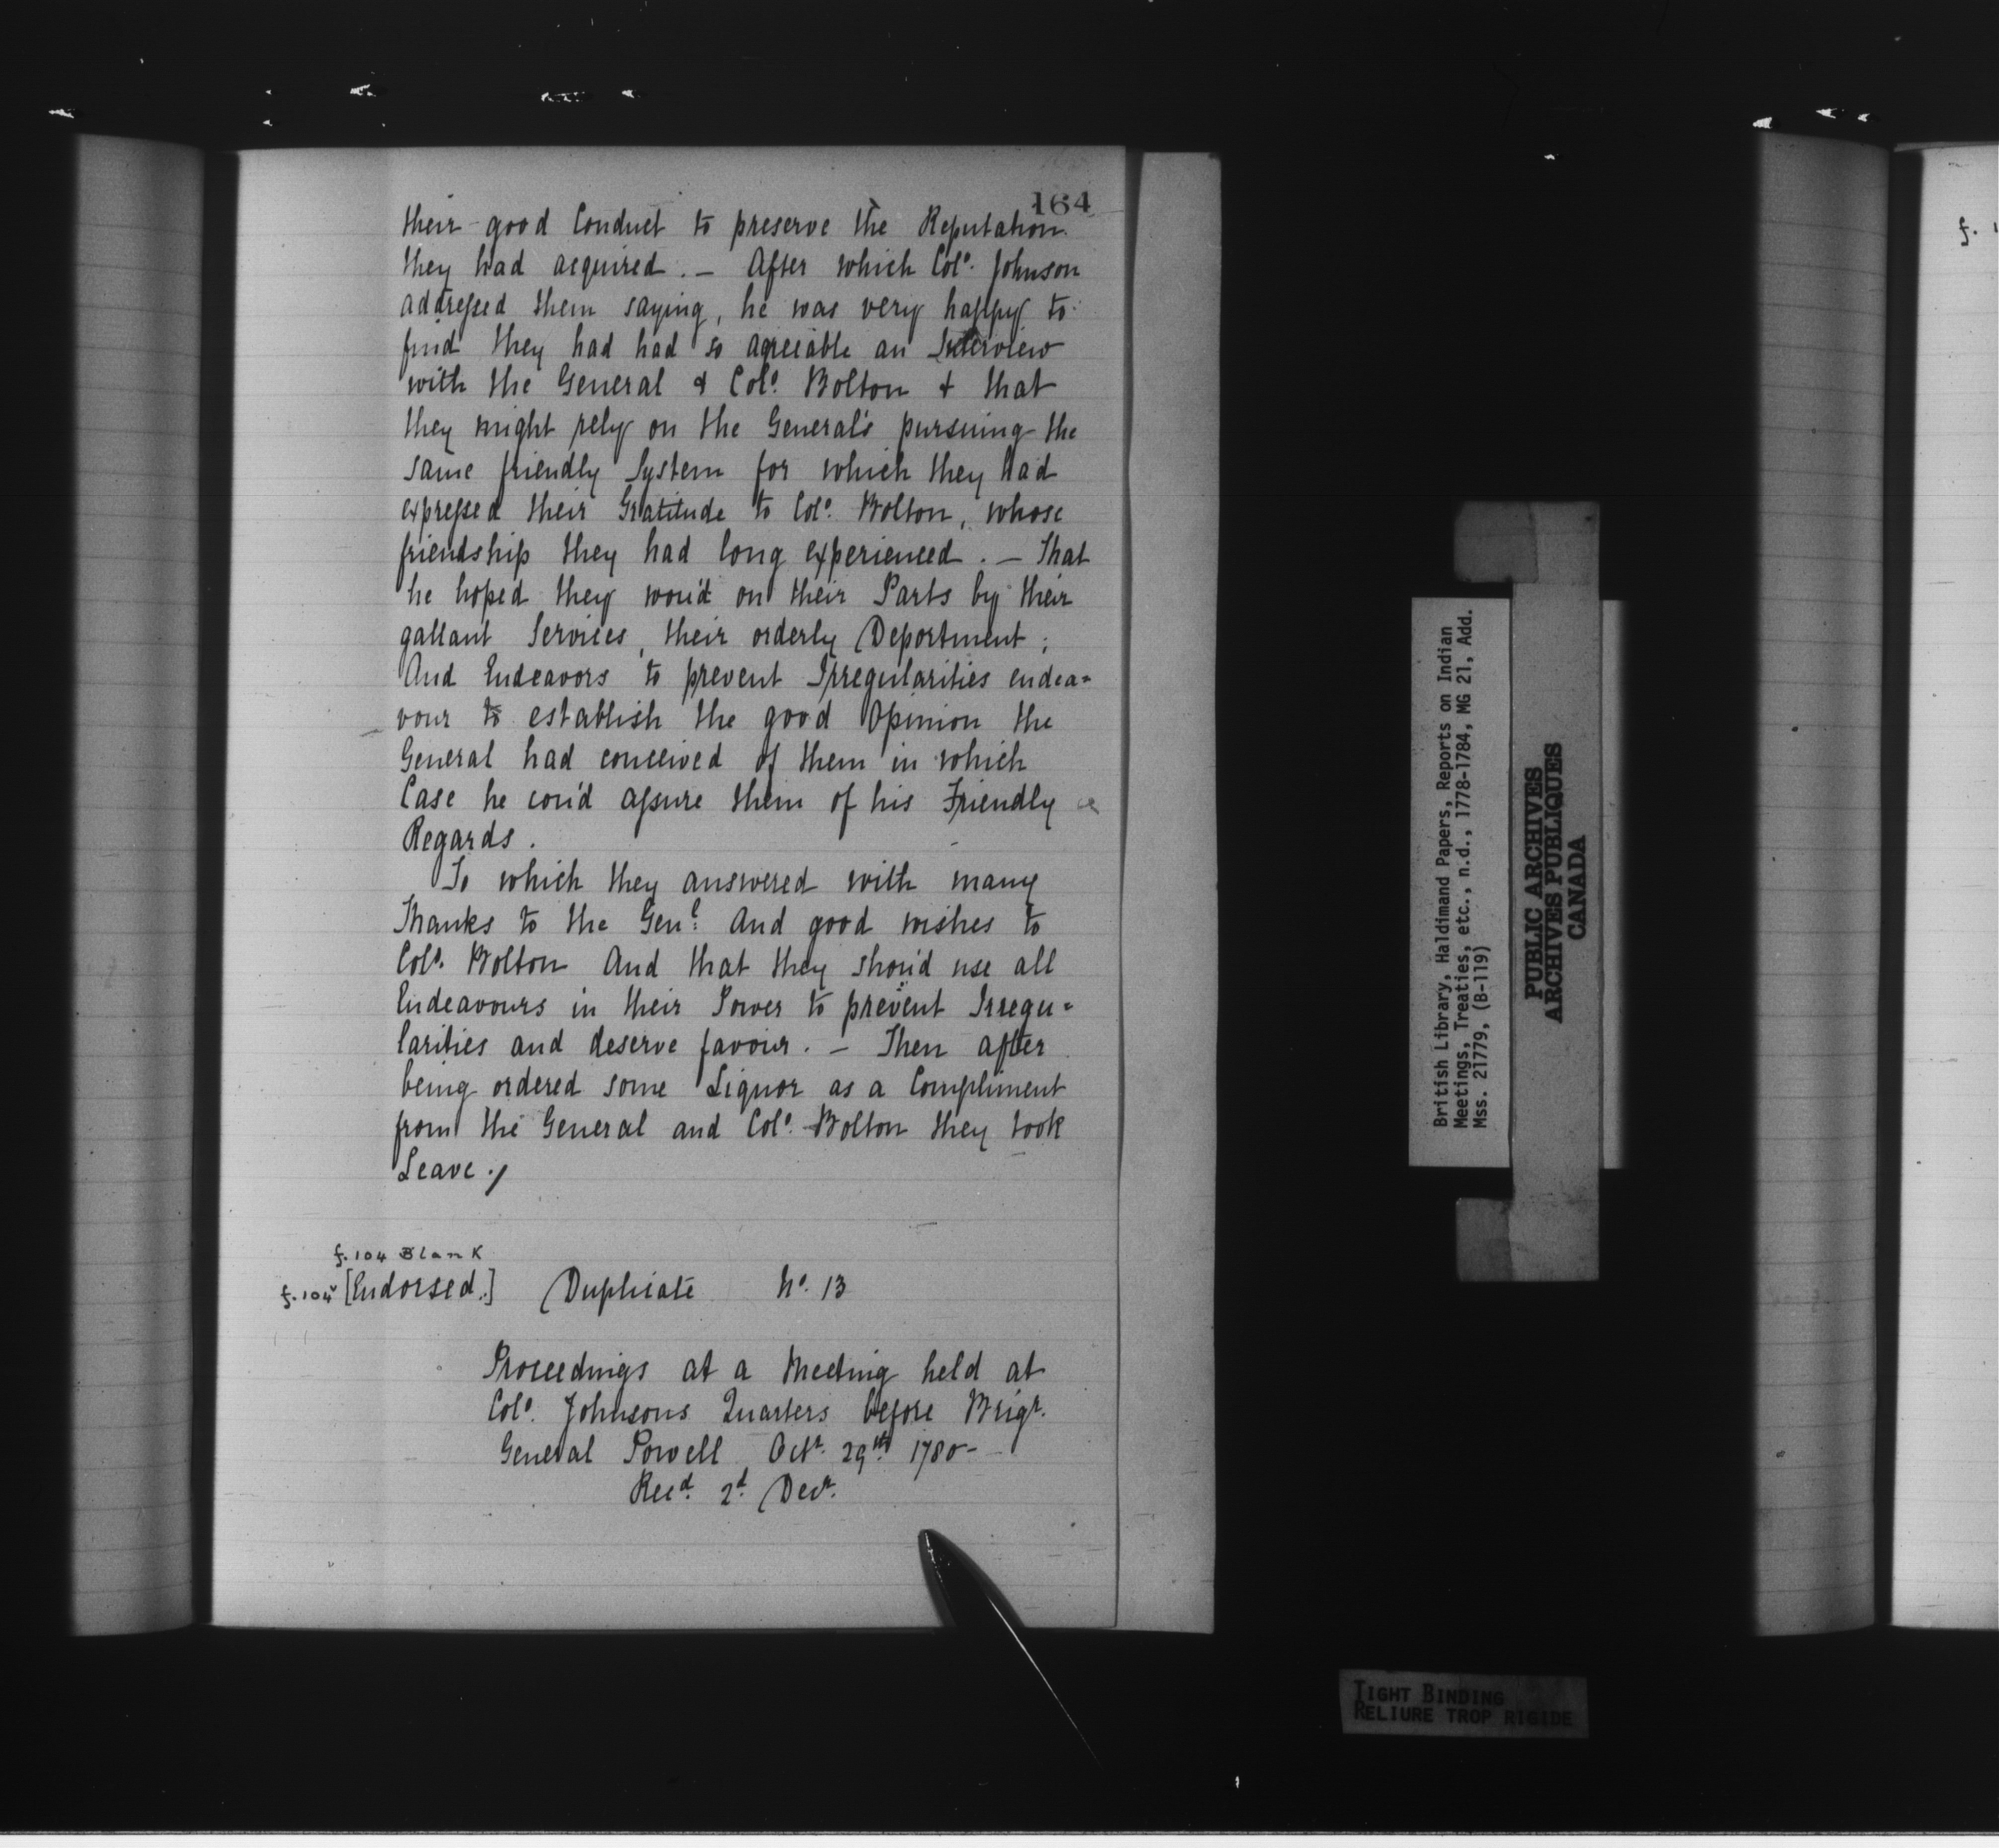 164
their good Conduct to preserve the Reputation
they had acquired. — After which Colº. Johnson
addressed them saying, he was very happy to
find they had had so agreeable an Interview
with the General & Colº. Bolton & that
they might rely on the General's pursuing the
same friendly System for which they had
expressed their Gratitude to Colº. Bolton, whose
friendship they had long experienced. — That
he hoped they wou'd on their Parts by their
gallant Services, their orderly Deportment;
And Endeavors to prevent Irregularities endea=
vour to establish the good Opinion the
General had conceived of them in which
Case he cou'd assure them of his Friendly
Regards.
To which they answered with many
Thanks to the Genl. And good wishes to
Colº. Bolton And that they shou'd use all
Endeavours in their Power to prevent Irregu=
larities and deserve favour. — Then after
being ordered some Liquor as a Compliment
from the General and Colº. Bolton they took
Leave./
f. 104 Blank
f. 104v [Endorsed.] Duplicate Nº. 13
Proceedings at a Meeting held at
Colº. Johnsons Quarters before Brigr.
General Powell Octr. 29th 1780-
Recd. 2d. Decr.
British Library, Haldimand Papers, Reports on Indian
Meetings, Treaties, etc., n.d., 1778-1784, MG 21, Add.
Mss. 21779, (B-119)
PUBLIC ARCHIVES
ARCHIVES PUBLIQUES
CANADA
TIGHT BINDING
RELIURE TROP RIGIDE
f.